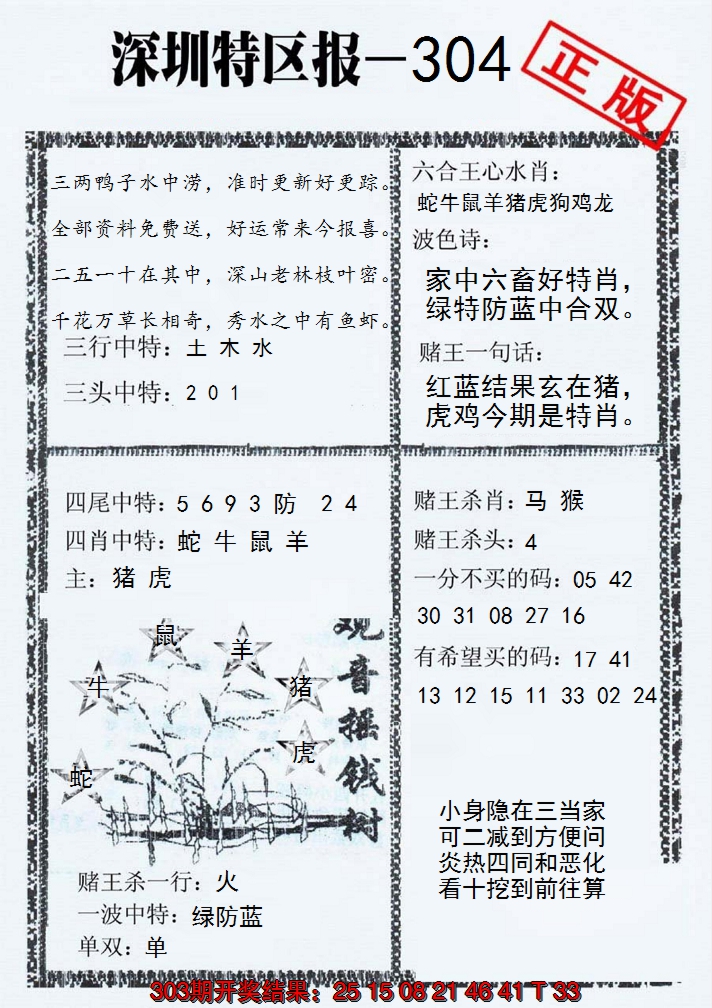 深圳特区报—304
正版
三两鸭子水中涝，准时更新好更踪。
全部资料免费送，好运常来今报喜。
二五一十在其中，深山老林枝叶密。
千花万草长相奇，秀水之中有鱼虾。
三行中特：土 木 水
三头中特：2 0 1
六合王心水肖：
蛇牛鼠羊猪虎狗鸡龙
波色诗：
家中六畜好特肖，
绿特防蓝中合双。
赌王一句话：
红蓝结果玄在猪，
虎鸡今期是特肖。
四尾中特：5 6 9 3 防 2 4
四肖中特：蛇 牛 鼠 羊
主：猪 虎
鼠
羊
牛
猪
虎
蛇
观音摇钱树
赌王杀一行：火
一波中特：绿防蓝
单双：单
赌王杀肖：马 猴
赌王杀头：4
一分不买的码：05 42
30 31 08 27 16
有希望买的码：17 41
13 12 15 11 33 02 24
小身隐在三当家
可二减到方便问
炎热四同和恶化
看十挖到前往算
303期开奖结果：25 15 08 21 46 41 T 33